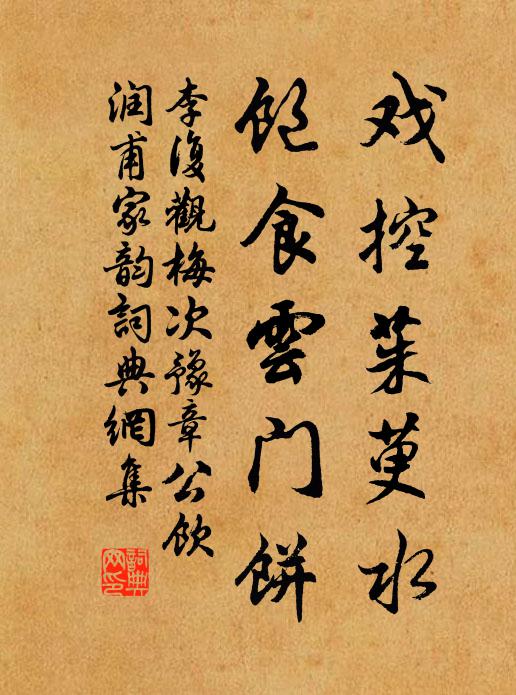 戏控茱萸水
飽食雲门餅
李復觀梅次豫章公飲
润甫家韵詞典網集
詞典网印